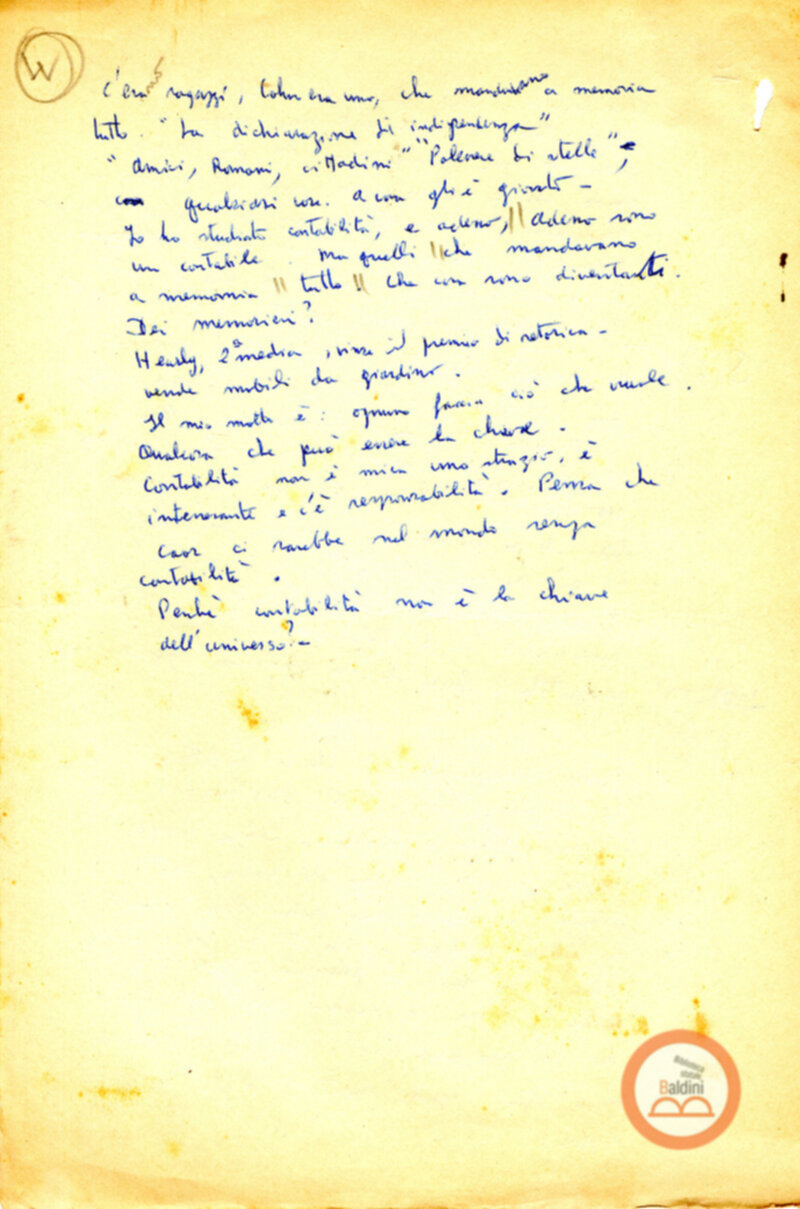 W
C'erano ragazzi, Cohn era uno, che mandavano a memoria
tutto. "La dichiarazione di indipendenza"
"Amici, Romani, cittadini" "Polvere di stelle",
qualsiasi cosa. A cosa gli è giovato –
Io ho studiato contabilità, e adesso, || adesso sono
un contabile. Ma quelli || che mandavano
a memoria || tutto || che cosa sono diventati.
Dei memorieri?
Hearly, 2ª media, vinse il premio di retorica –
vende mobili da giardino.
Il mio motto è: ognuno faccia ciò che vuole.
Qualcosa che può essere la chiave.
Contabilità non è mica uno strazio, è
interessante e c'è responsabilità. Pensa che
caos ci sarebbe nel mondo senza
contabilità.
Perchè contabilità non è la chiave
dell'universo? –
Biblioteca
statale
Baldini